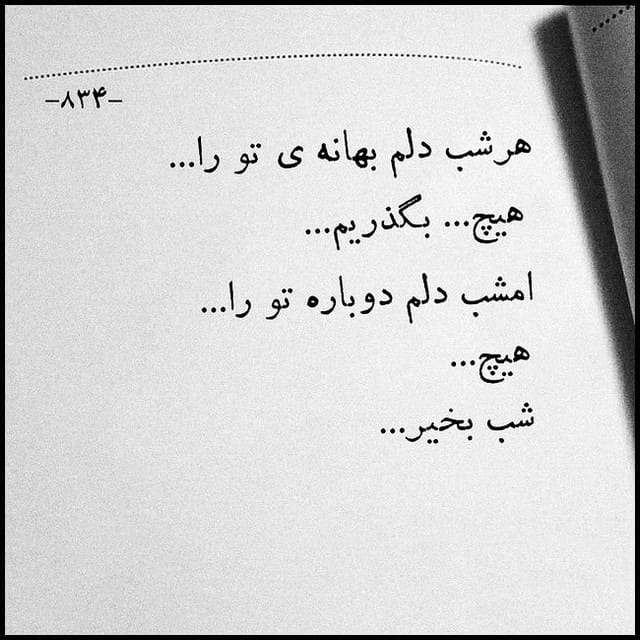 -۸۳۴-
هرشب دلم بهانه ی تو را...
هیچ... بگذریم...
امشب دلم دوباره تو را...
هیچ...
شب بخیر...